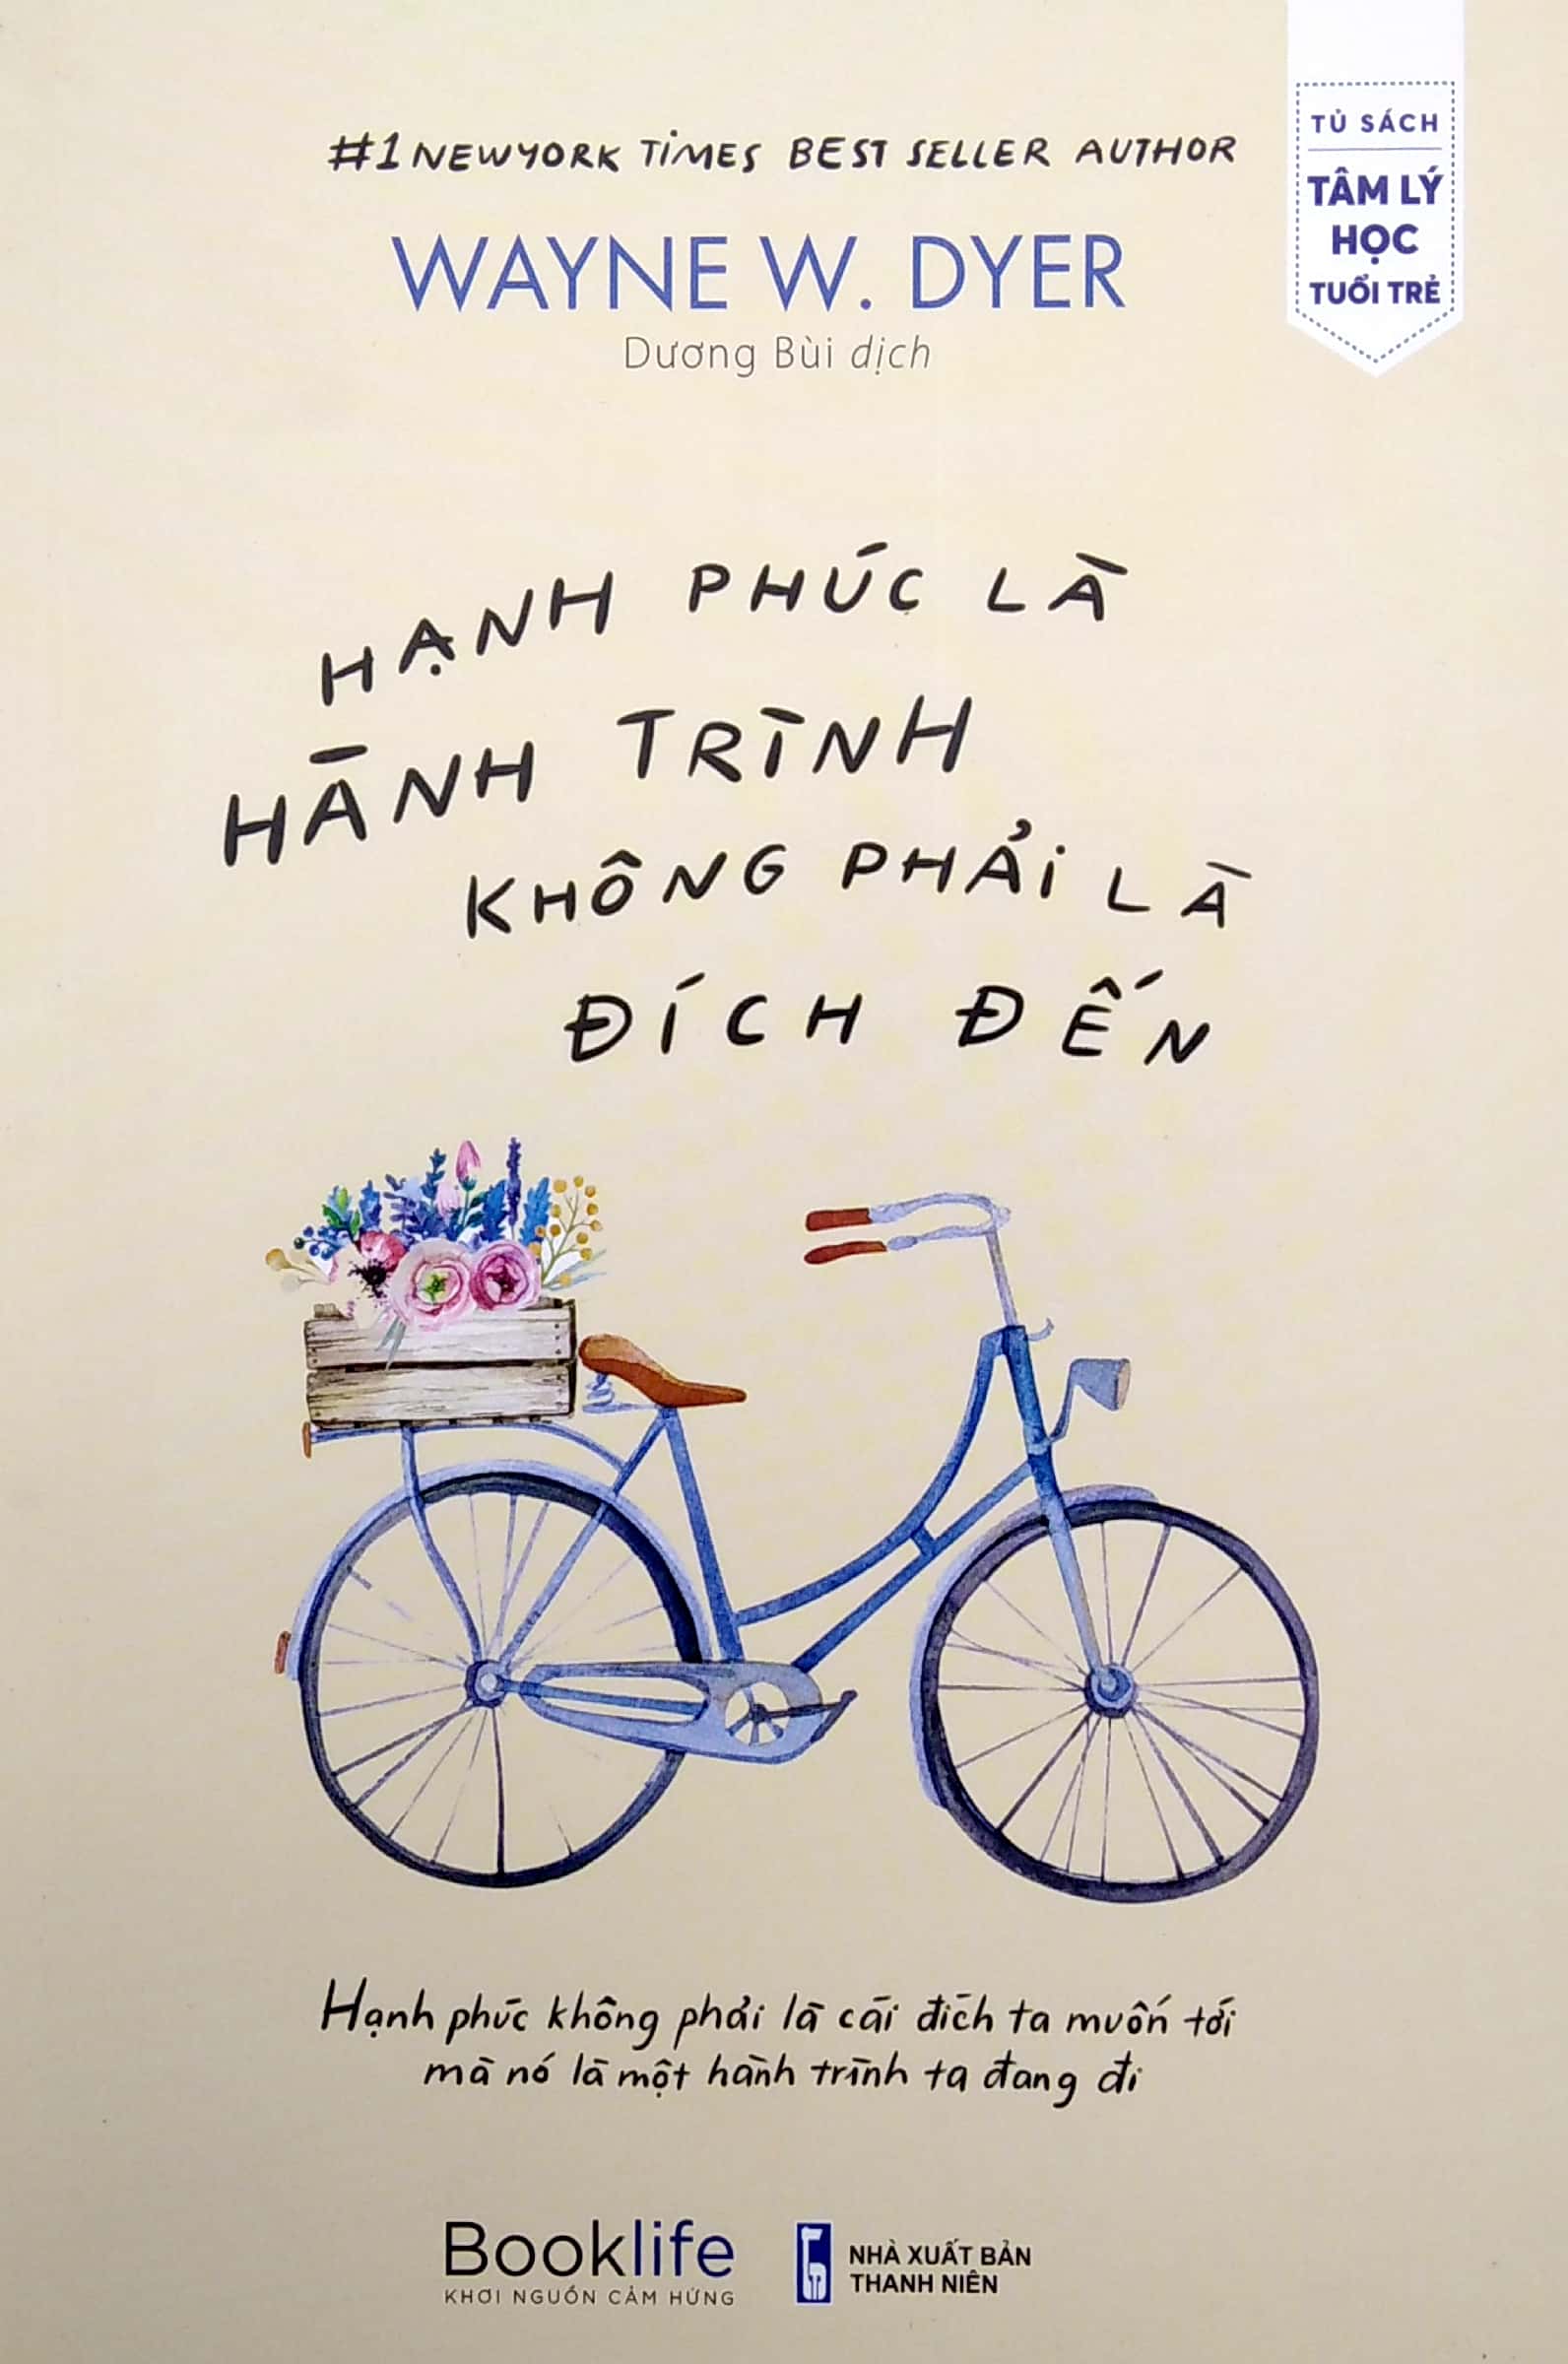 #1 NEWYORK TIMES BEST SELLER AUTHOR
WAYNE W. DYER
Dương Bùi dịch
TỦ SÁCH
TÂM LÝ
HỌC
TUỔI TRẺ
HẠNH PHÚC LÀ
HÀNH TRÌNH
KHÔNG PHẢI LÀ
ĐÍCH ĐẾN
Hạnh phúc không phải là cái đích ta muốn tới
mà nó là một hành trình ta đang đi
Booklife
KHƠI NGUỒN CẢM HỨNG
NHÀ XUẤT BẢN
THANH NIÊN